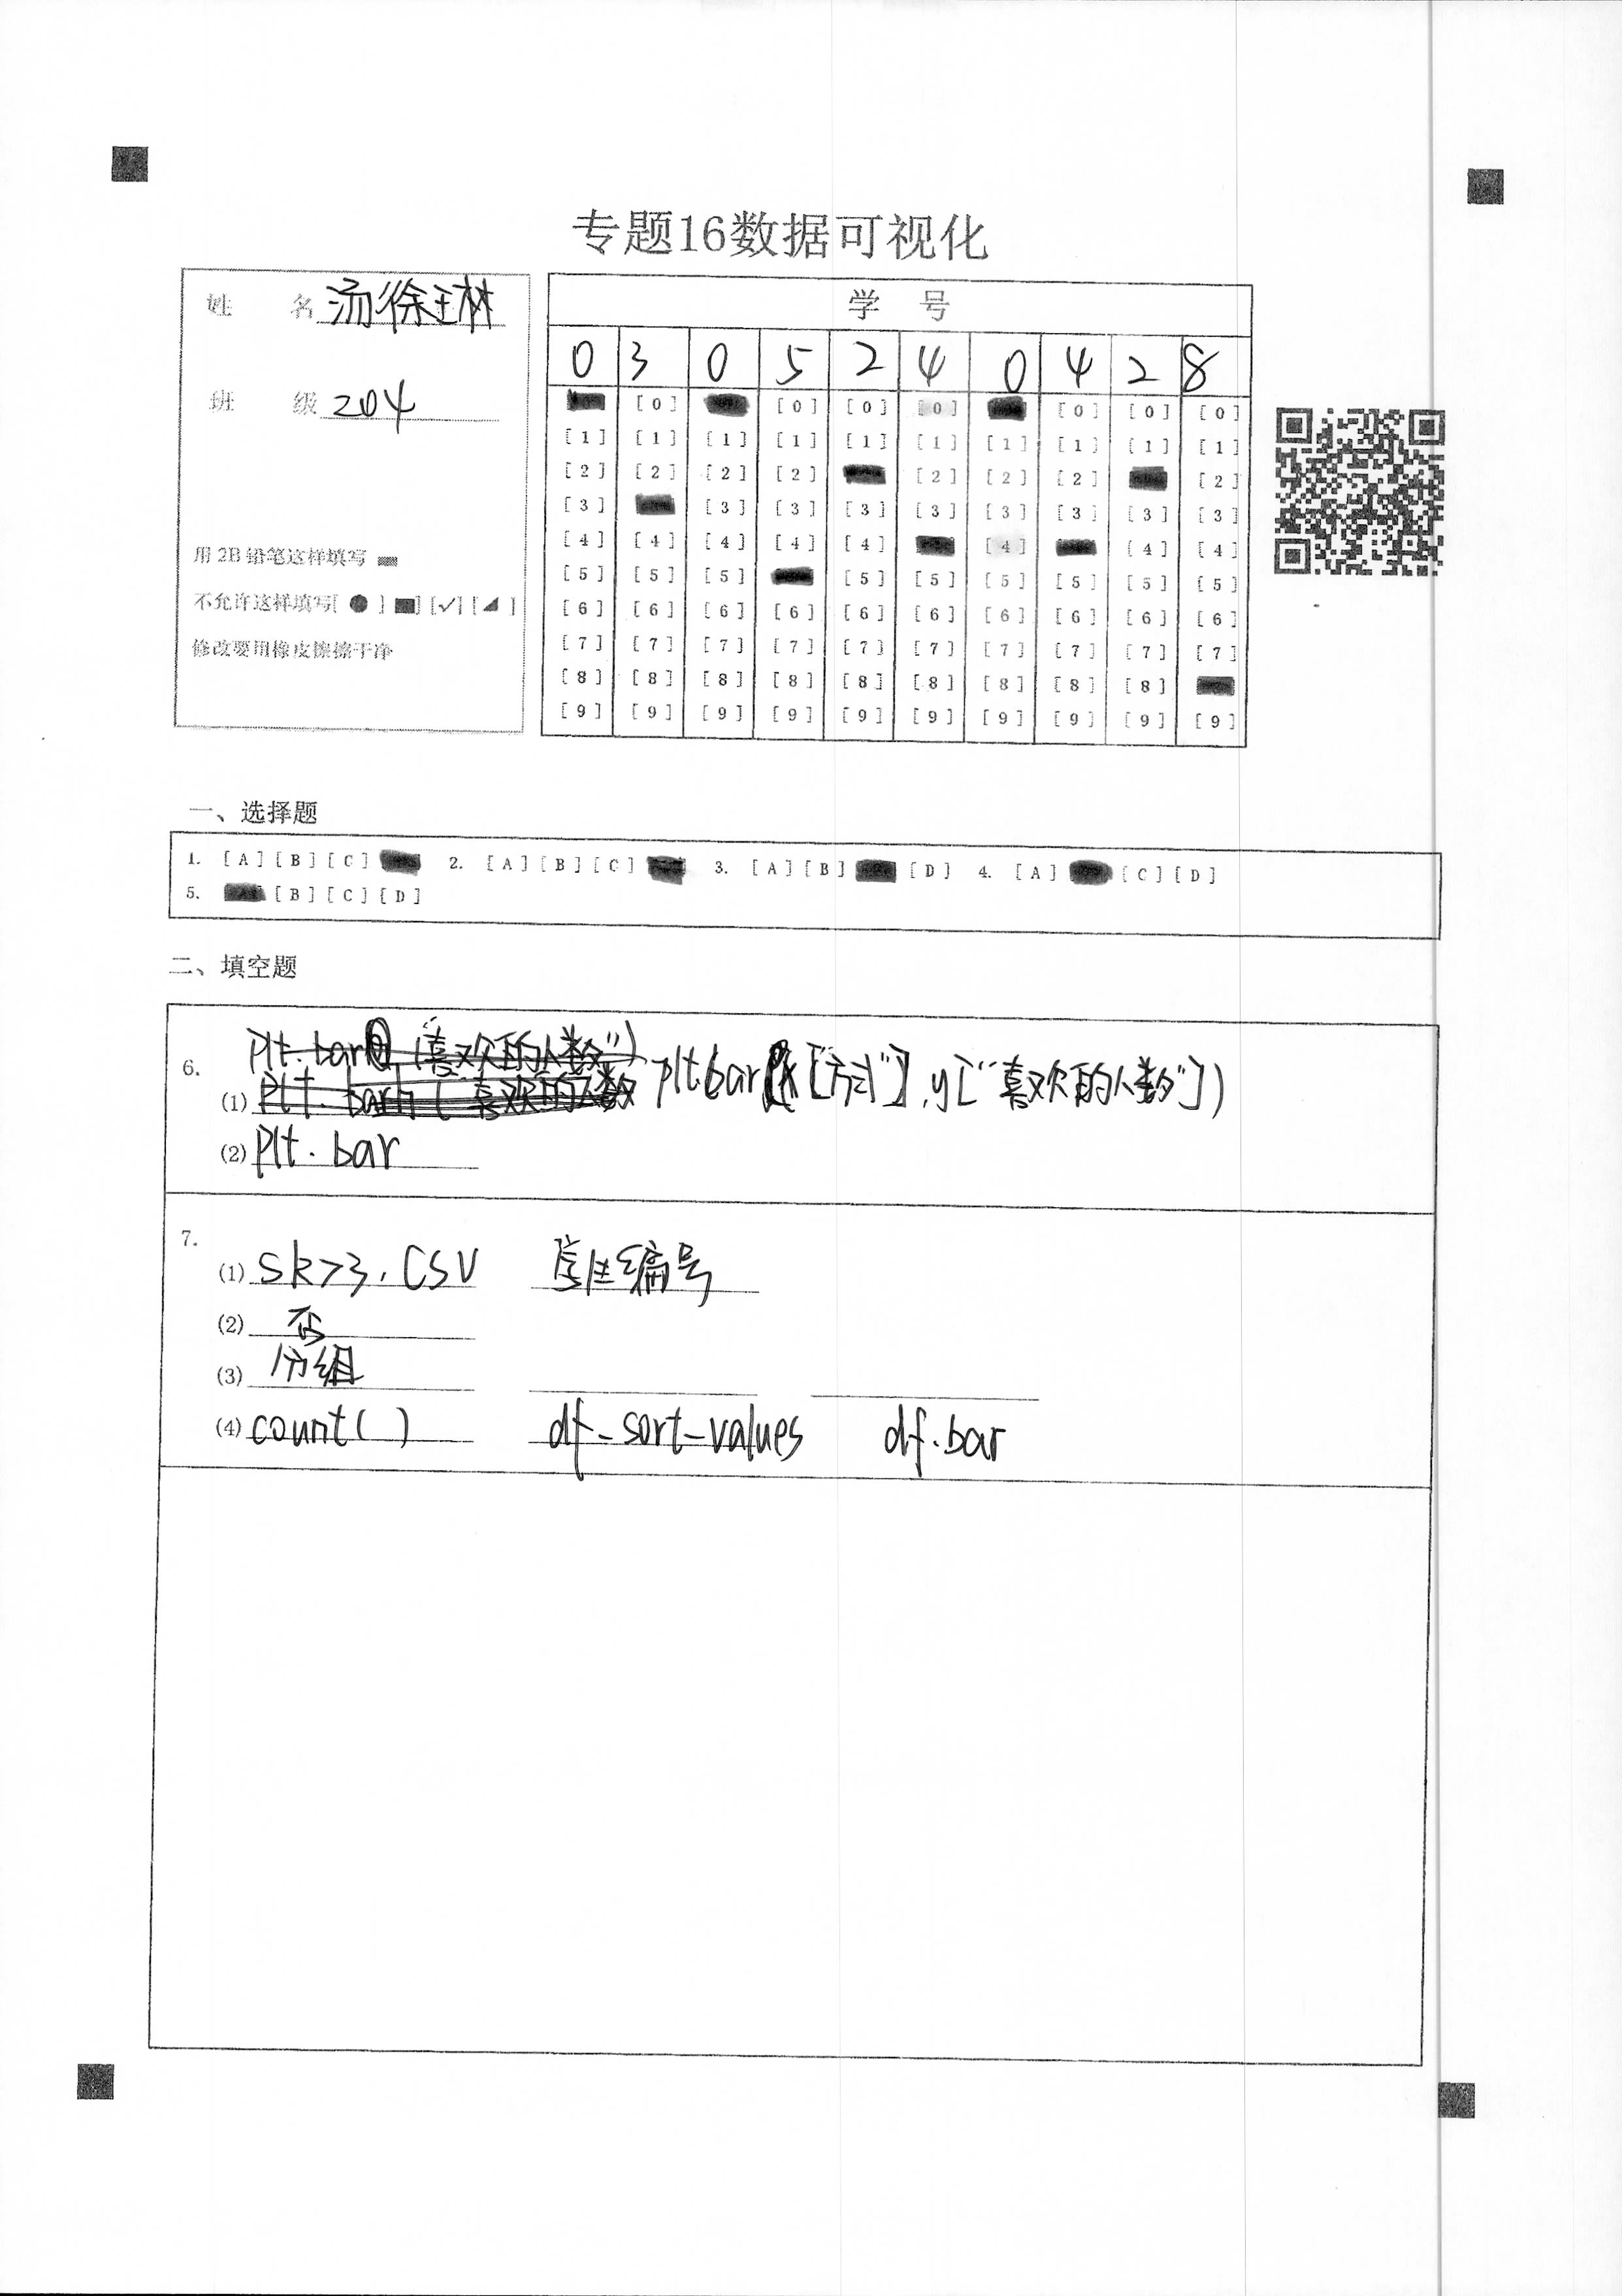 专题16数据可视化
姓 名 汤徐王林
班 级 204
用2B铅笔这样填写
不允许这样填写[ ● ] [■] [✓] [◢ ]
修改要用橡皮擦擦干净
学 号
0 3 0 5 2 4 0 4 2 8
[0] [0] [0] [0] [0] [0] [0]
[1] [1] [1] [1] [1] [1] [1] [1] [1] [1]
[2] [2] [2] [2] [2] [2] [2] [2]
[3] [3] [3] [3] [3] [3] [3] [3] [3]
[4] [4] [4] [4] [4] [4] [4] [4]
[5] [5] [5] [5] [5] [5] [5] [5] [5]
[6] [6] [6] [6] [6] [6] [6] [6] [6] [6]
[7] [7] [7] [7] [7] [7] [7] [7] [7] [7]
[8] [8] [8] [8] [8] [8] [8] [8] [8]
[9] [9] [9] [9] [9] [9] [9] [9] [9] [9]
一、选择题
1. [A] [B] [C] 2. [A] [B] [C] 3. [A] [B] [D] 4. [A] [C] [D]
5. [B] [C] [D]
二、填空题
6.
plt.bar ("喜欢的人数")
(1) plt.barh ("喜欢的人数 plt.bar(x["方式"],y["喜欢的人数"])
(2) plt.bar
7.
(1) sk73.csv 学生编号
(2) 否
(3) 分组
(4) count() df-sort-values df.bar